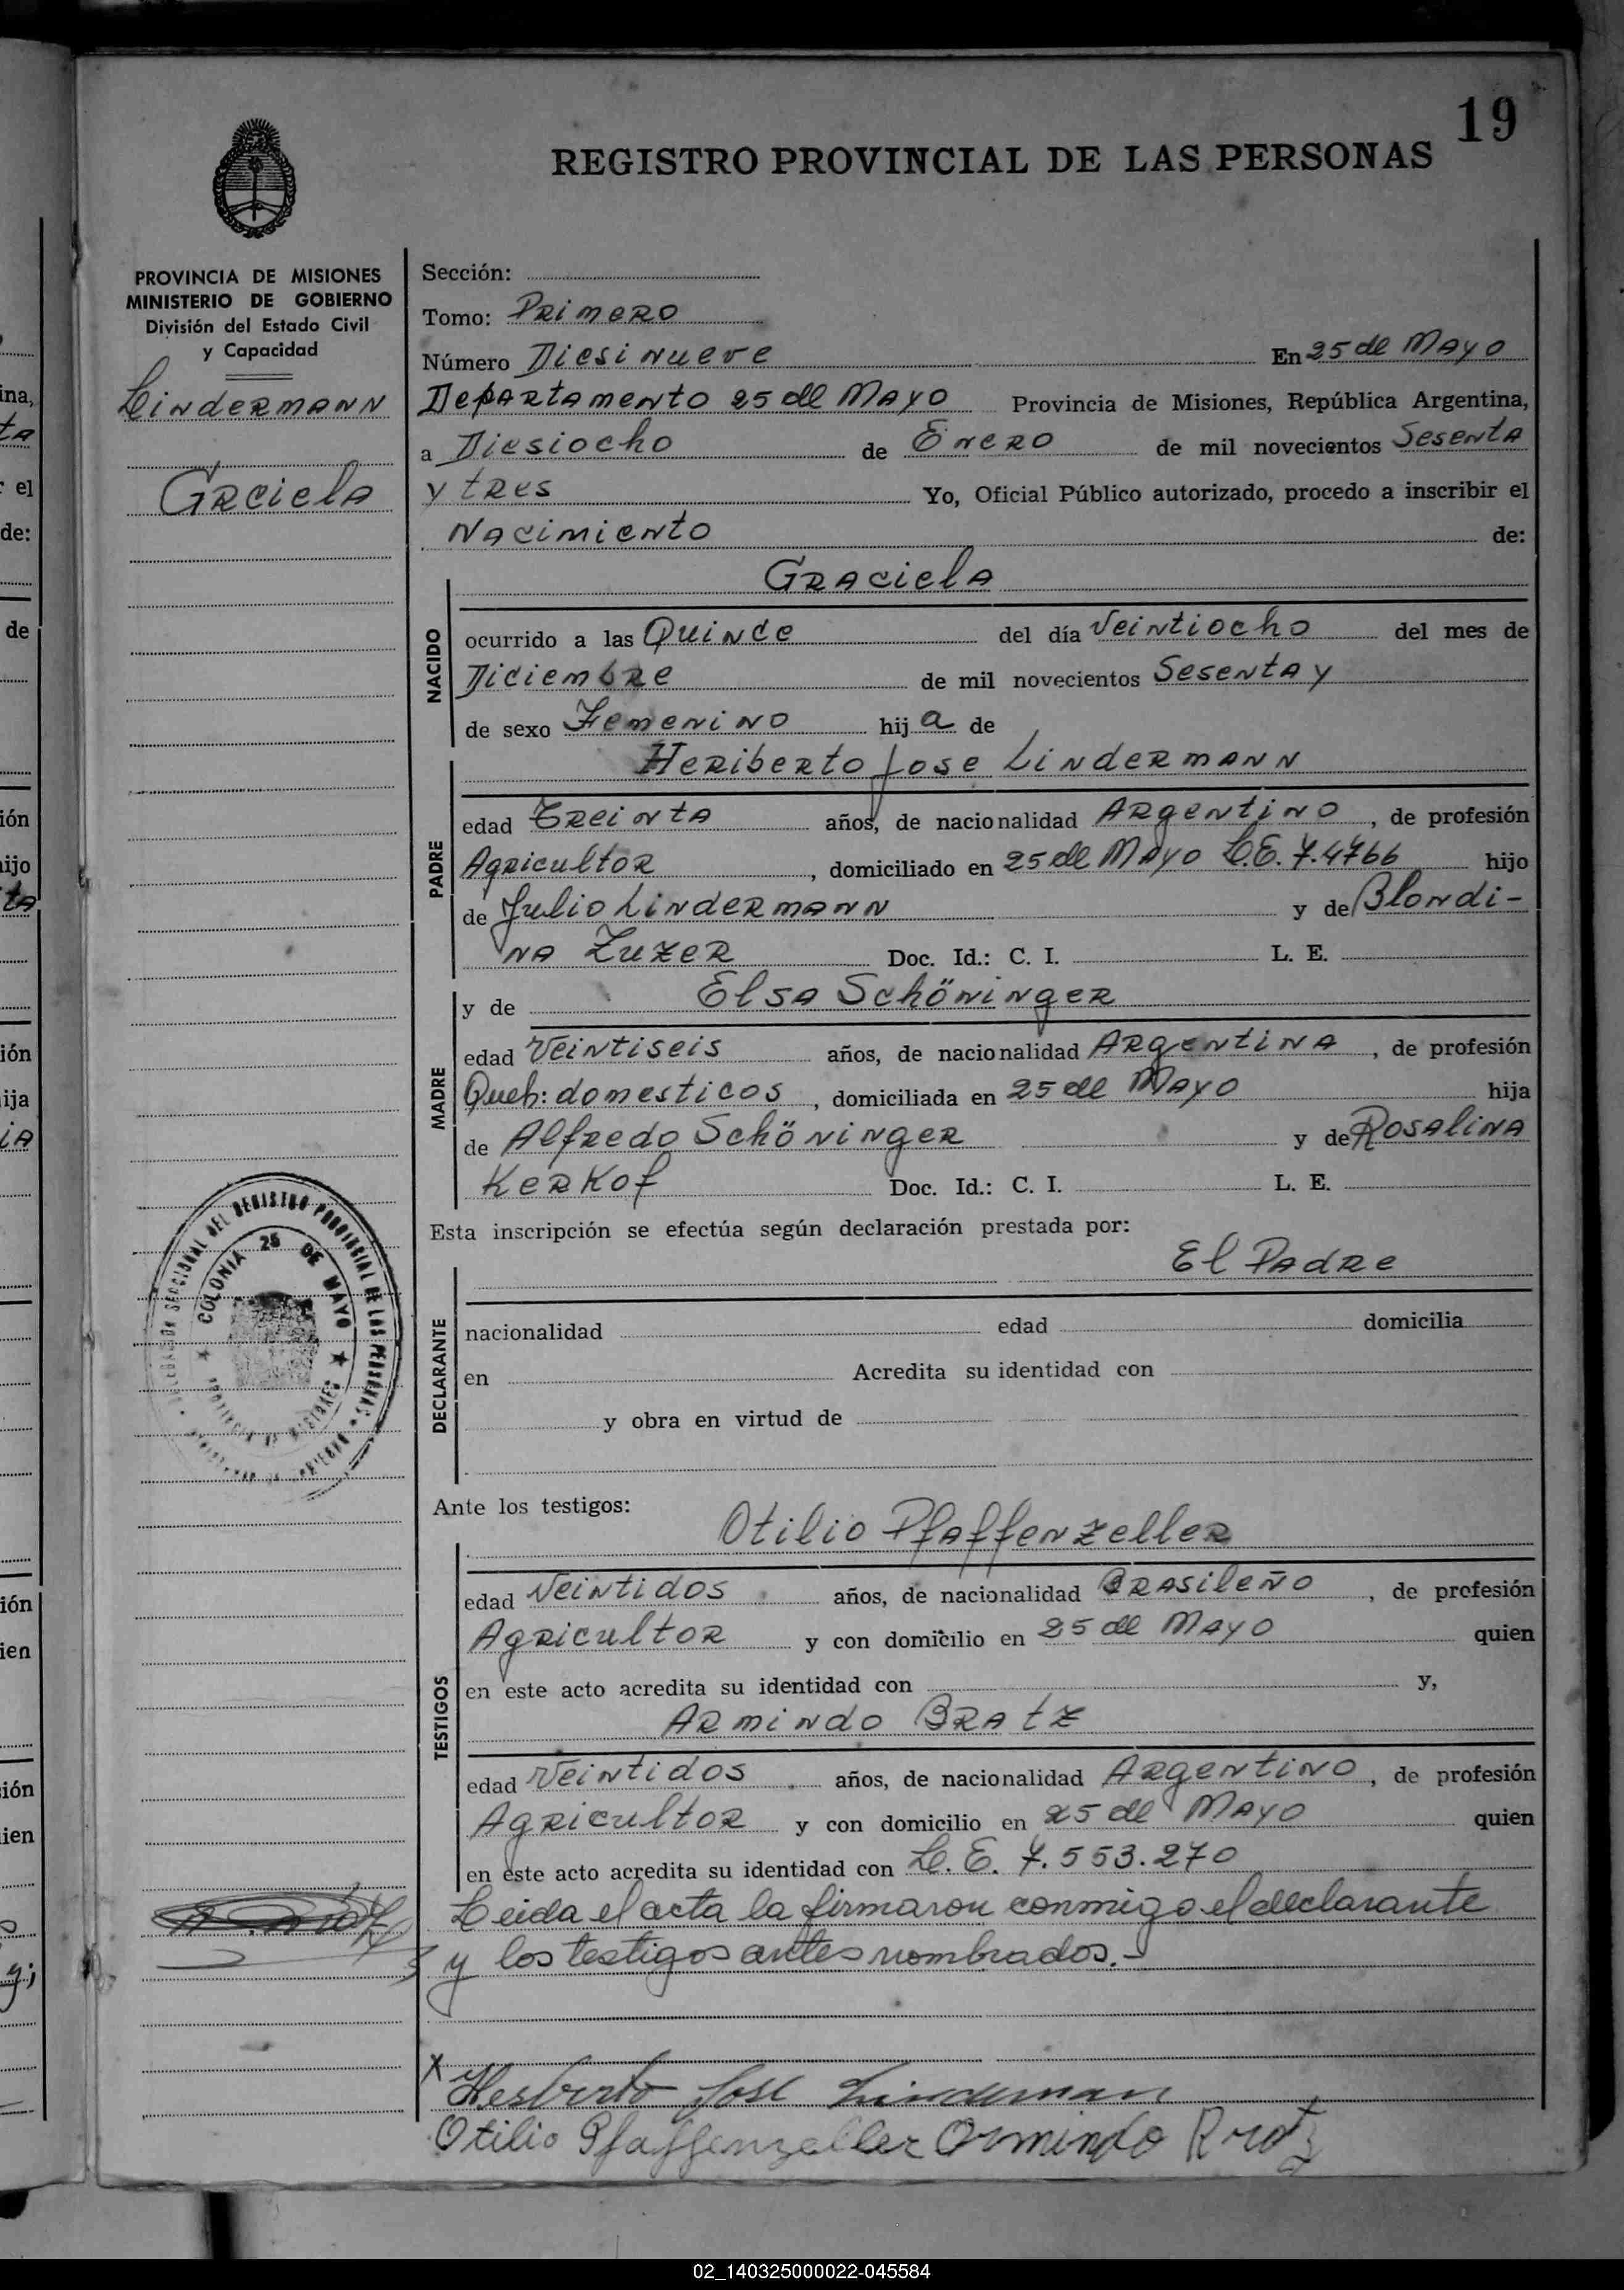 19
REGISTRO PROVINCIAL DE LAS PERSONAS
PROVINCIA DE MISIONES
MINISTERIO DE GOBIERNO
División del Estado Civil
y Capacidad
Lindermann
Grciela
Sección:
Tomo: Primero
Número Diesinueve En 25 de Mayo
Departamento 25 de Mayo Provincia de Misiones, República Argentina,
a Diesiocho de Enero de mil novecientos Sesenta
y tres Yo, Oficial Público autorizado, procedo a inscribir el
Nacimiento de:
Graciela
NACIDO
ocurrido a las Quince del día Veintiocho del mes de
Diciembre de mil novecientos Sesenta y
de sexo Femenino hija de
Heriberto Jose Lindermann
PADRE
edad Treinta años, de nacionalidad Argentino, de profesión
Agricultor, domiciliado en 25 de Mayo L.E. 7.4766 hijo
de Julio Lindermann y de Blondi-
na Zuzer Doc. Id.: C. I. L. E.
y de Elsa Schöninger
MADRE
edad Veintiseis años, de nacionalidad Argentina, de profesión
Queh: domesticos, domiciliada en 25 de Mayo hija
de Alfredo Schöninger y de Rosalina
Kerkof Doc. Id.: C. I. L. E.
Esta inscripción se efectúa según declaración prestada por:
El Padre
DECLARANTE
nacionalidad edad domicilia
en Acredita su identidad con
y obra en virtud de
COLONIA 25 DE MAYO
SECCIONAL DEL REGISTRO PROVINCIAL DE LAS PERSONAS
Ante los testigos:
Otilio Pfaffenzeller
TESTIGOS
edad Veintidos años, de nacionalidad Brasileño, de profesión
Agricultor y con domicilio en 25 de Mayo quien
en este acto acredita su identidad con y,
Armindo Bratz
edad Veintidos años, de nacionalidad Argentino, de profesión
Agricultor y con domicilio en 25 de Mayo quien
en este acto acredita su identidad con L.E. 7.553.270
Leida el acta la firmaron conmigo el declarante
y los testigos antes nombrados.-
X Heriberto Jose Lindeman
Otilio Pfaffenzeller Ormindo
02_140325000022-045584